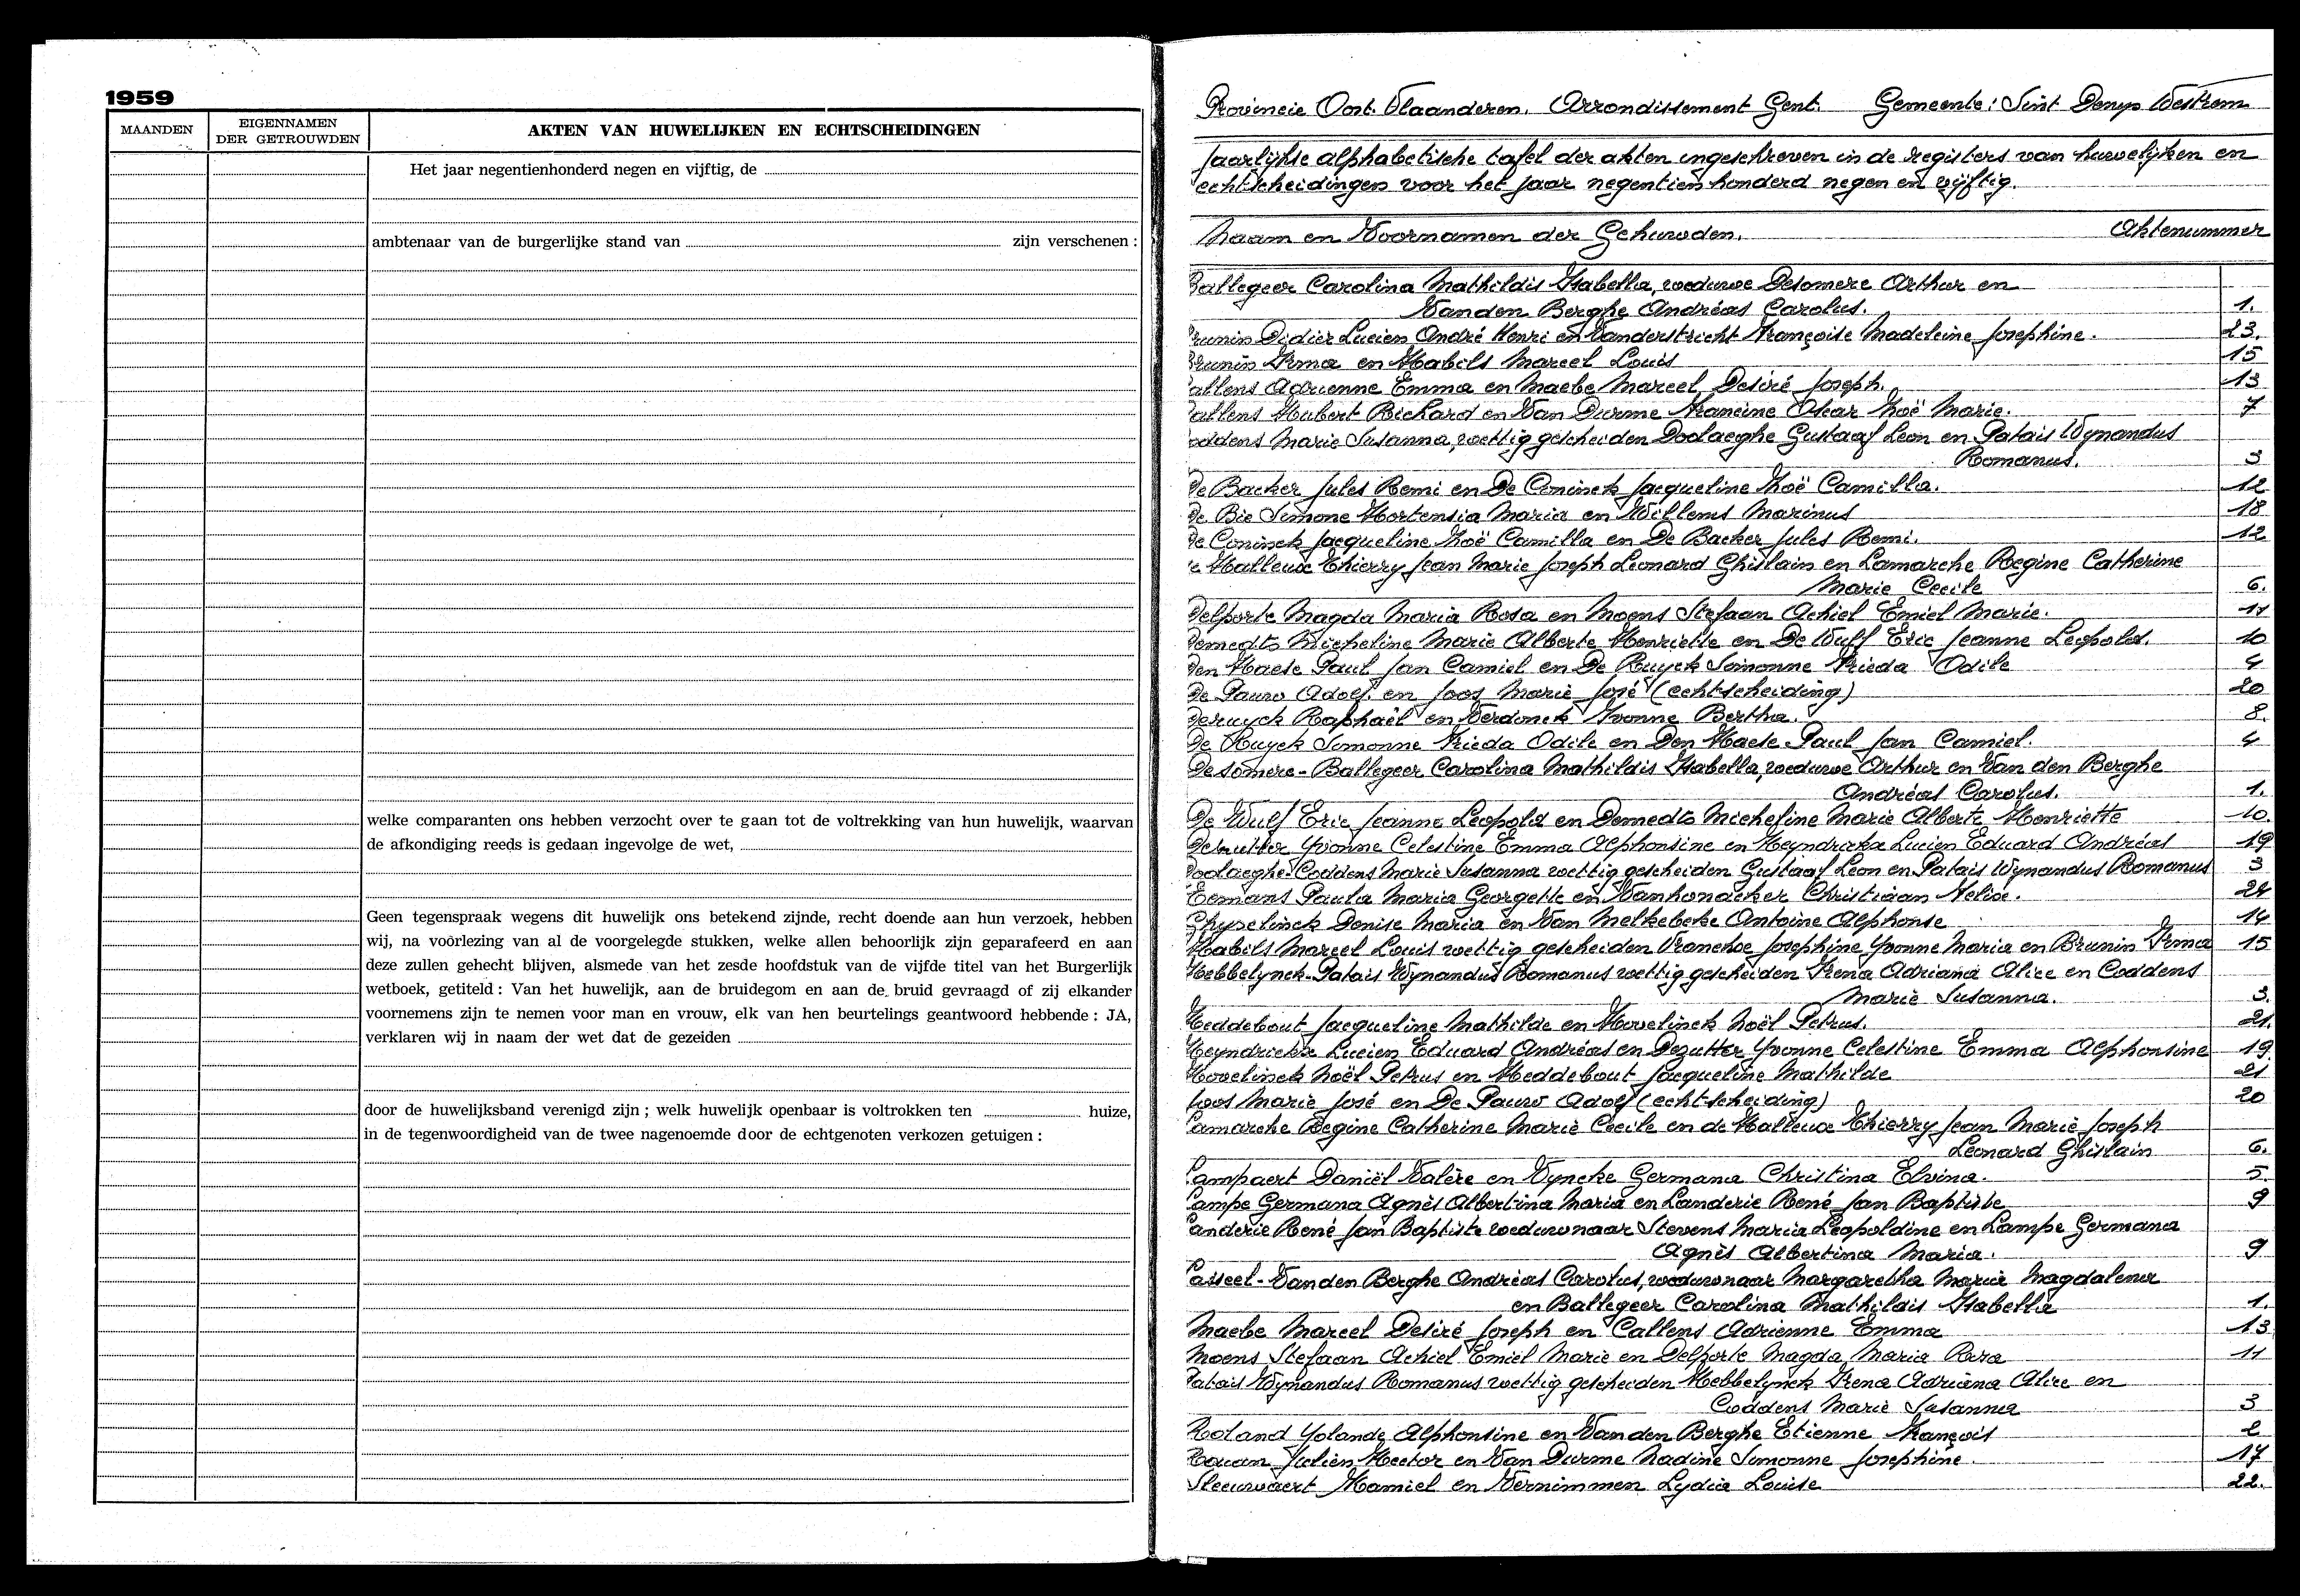 1959
MAANDEN
EIGENNAMEN
DER GETROUWDEN
AKTEN VAN HUWELIJKEN EN ECHTSCHEIDINGEN
Het jaar negentienhonderd negen en vijftig, de
ambtenaar van de burgerlijke stand van zijn verschenen :
welke comparanten ons hebben verzocht over te gaan tot de voltrekking van hun huwelijk, waarvan
de afkondiging reeds is gedaan ingevolge de wet,
Geen tegenspraak wegens dit huwelijk ons betekend zijnde, recht doende aan hun verzoek, hebben
wij, na voorlezing van al de voorgelegde stukken, welke allen behoorlijk zijn geparafeerd en aan
deze zullen gehecht blijven, alsmede van het zesde hoofdstuk van de vijfde titel van het Burgerlijk
wetboek, getiteld : Van het huwelijk, aan de bruidegom en aan de bruid gevraagd of zij elkander
voornemens zijn te nemen voor man en vrouw, elk van hen beurtelings geantwoord hebbende : JA,
verklaren wij in naam der wet dat de gezeiden
door de huwelijksband verenigd zijn ; welk huwelijk openbaar is voltrokken ten huize,
in de tegenwoordigheid van de twee nagenoemde door de echtgenoten verkozen getuigen :
Provincie Oost-Vlaanderen. Arrondissement Gent. Gemeente : Sint Denys Westrem
Jaarlijkse alphabetische tafel der akten ingeschreven in de registers van huwelijken en
echtscheidingen voor het jaar negentien honderd negen en vijftig.
Naam en Voornamen der Gehuwden. Aktenummer
Ballegeer Carolina Mathildis Isabella, weduwe Desomere Arthur en
Vanden Berghe Andréas Carolus. 1.
Brunin Didier Lucien André Henri en Vanderstricht Françoise Madeleine Josephine. 23.
Brunin Irma en Habils Marcel Louis 15
Callens Adrienne Emma en Maebe Marcel Desiré Joseph. 13
Callens Hubert Richard en Van Durme Francine Oscar Noë Marie. 7
Coddens Marie Susanna, wettig gescheiden Doolaeghe Gustaaf Leon en Patais Wynandus
Romanus. 3
De Backer Jules Remi en De Coninck Jacqueline Zoë Camilla. 12
De Bie Simone Hortensia Maria en Willems Marinus 18
De Coninck Jacqueline Zoë Camilla en De Backer Jules Remi. 12
de Halleux Thierry Jean Marie Joseph Leonard Ghislain en Lamarche Regine Catherine
Marie Cecile 6.
Delporte Magda Maria Rosa en Moens Stefaan Achiel Emiel Marie. 11
Demedts Micheline Marie Alberte Henriette en De Wulf Eric Jeanne Leopold. 10
Den Haese Paul Jan Camiel en De Ruyck Simonne Frieda Odile 4
De Pauw Adolf en Joos Marie José (echtscheiding) 20
Deruyck Raphaël en Verdonck Yvonne Bertha. 8.
De Ruyck Simonne Frieda Odile en Den Haese Paul Jan Camiel. 4
Desomere-Ballegeer Carolina Mathildis Isabella, weduwe Arthur en Van den Berghe
Andréas Carolus. 1.
De Wulf Eric Jeanne Leopold en Demedts Micheline Marie Alberte Henriette 10.
Dezutter Yvonne Celestine Emma Alphonsine en Heyndrickx Lucien Eduard Andréas 19
Doolaeghe-Coddens Marie Susanna wettig gescheiden Gustaaf Leon en Patais Wynandus Romanus 3
Eemans Paula Maria Georgette en Vanhonacker Christiaan Felix. 24
Ghyselinck Denise Maria en Van Melkebeke Antoine Alphonse 14
Habils Marcel Louis wettig gescheiden Vranckx Josephine Yvonne Maria en Brunin Irma 15
Hebbelynck-Patais Wynandus Romanus wettig gescheiden Irena Adriana Alice en Coddens
Marie Susanna. 3.
Heddebout Jacqueline Mathilde en Hovelinck Noël Petrus. 21.
Heyndrickx Lucien Eduard Andréas en Dezutter Yvonne Celestine Emma Alphonsine 19
Hovelinck Noël Petrus en Heddebout Jacqueline Mathilde 21
Joos Marie José en De Pauw Adolf (echtscheiding) 20
Lamarche Regine Catherine Marie Cecile en de Halleux Thierry Jean Marie Joseph
Leonard Ghislain 6.
Lampaert Daniël Valère en Wyncke Germana Christina Elvina. 5.
Lampe Germana Agnès Albertina Maria en Landerie René Jan Baptiste 9
Landerie René Jan Baptiste weduwnaar Stevens Maria Leopoldine en Lampe Germana
Agnès Albertina Maria. 9
Lasseel-Vanden Berghe Andréas Carolus, weduwnaar Margaretha Maria Magdalena
en Ballegeer Carolina Mathildis Isabella 1.
Maebe Marcel Desiré Joseph en Callens Adrienne Emma 13
Moens Stefaan Achiel Emiel Marie en Delporte Magda Maria Rosa 11
Patais Wynandus Romanus wettig gescheiden Hebbelynck Irena Adriana Alice en
Coddens Marie Susanna 3
Roland Yolande Alphonsine en Vanden Berghe Etienne François 2
Julien Hector en Van Durme Nadine Simonne Josephine. 17
Sleeuwaert Kamiel en Vernimmen Lydia Louise 22.